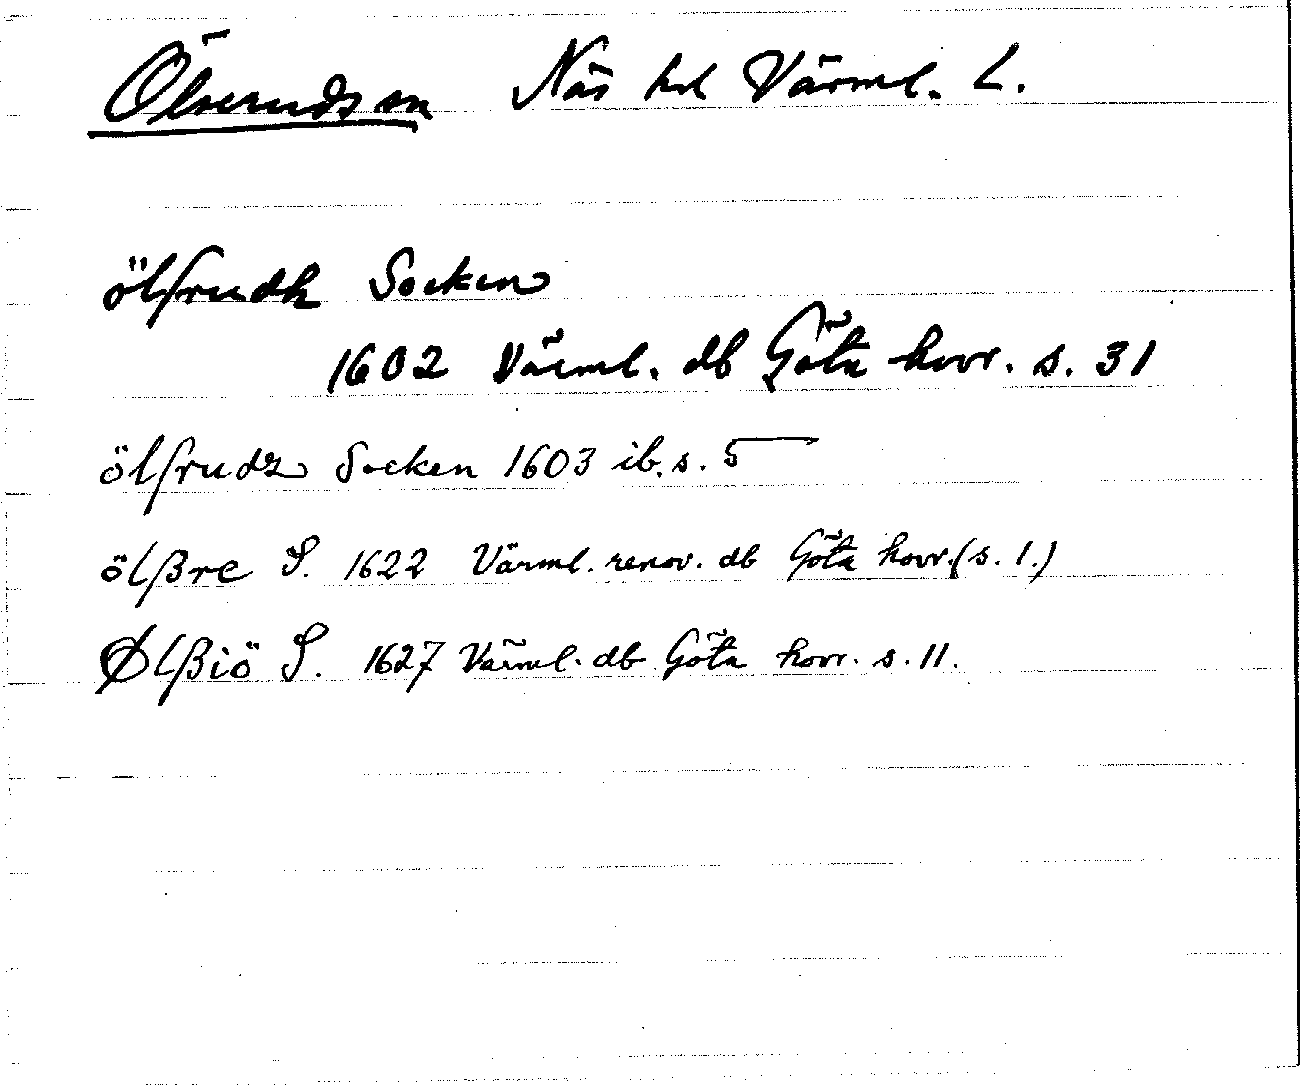 Ölseruds sn Näs hd Värml. L.
ölsrudh Socken
1602 Värml. db Göta hovr. s. 31
ölsrudz Socken 1603 ib. s. 5
ölßre S. 1622 Värml. renov. db Göta hovr. (s. 1.)
Ølßiö S. 1627 Värml. db Göta hovr. s. 11.